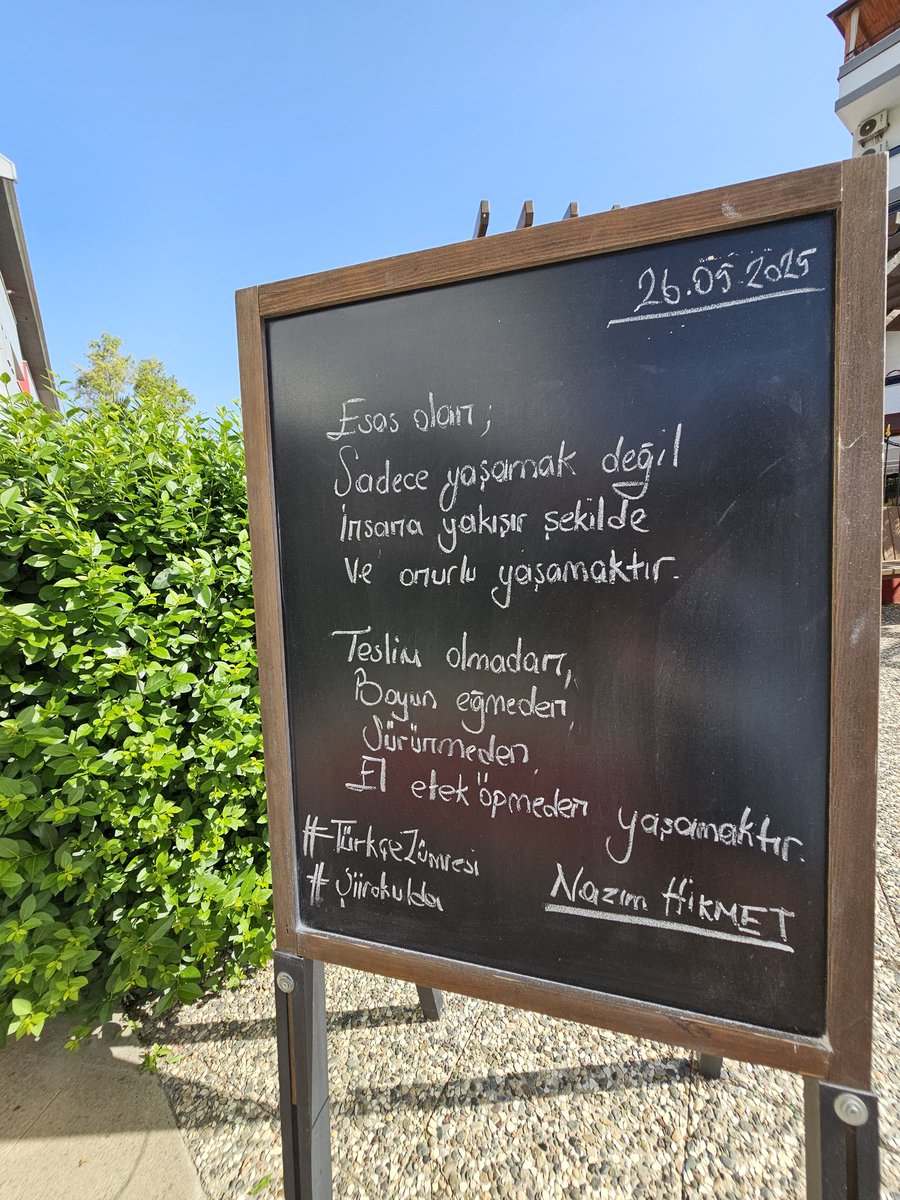 26.05.2025
Esas olan;
Sadece yaşamak değil
İnsana yakışır şekilde
Ve onurlu yaşamaktır.
Teslim olmadan,
Boyun eğmeden,
Sürünmeden,
El etek öpmeden yaşamaktır.
#TürkçeZümresi
#Şiirokulda
Nazım HİKMET